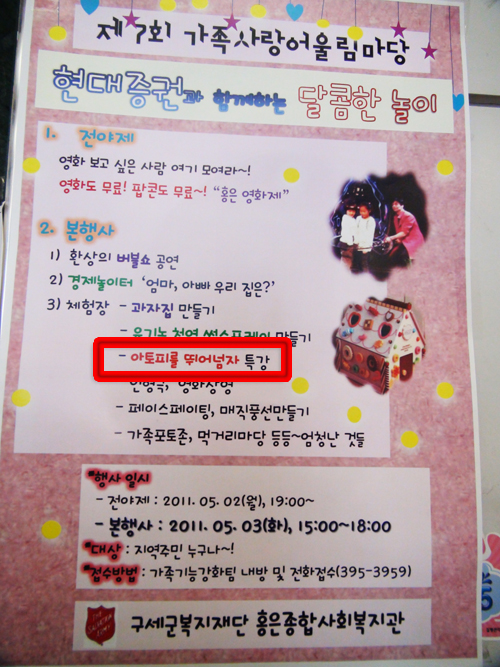 제7회 가족사랑어울림마당
현대증권과 함께하는 달콤한 놀이
1. 전야제
영화 보고 싶은 사람 여기 모여라~!
영화도 무료! 팝콘도 무료~! "홍은 영화제"
2. 본행사
1) 환상의 버블쇼 공연
2) 경제놀이터 '엄마, 아빠 우리 집은?'
3) 체험장 - 과자집 만들기
- 유기농 천연 썬스프레이 만들기
- 아토피를 뛰어넘자 특강
- 인형극, 영화상영
- 페이스페이팅, 매직풍선만들기
- 가족포토존, 먹거리마당 등등~엄청난 것들
*행사 일시
- 전야제 : 2011. 05. 02(월), 19:00~
- 본행사 : 2011. 05. 03(화), 15:00~18:00
*대상 : 지역주민 누구나~!
*접수방법 : 가족기능강화팀 내방 및 전화접수(395-3959)
THE SALVATION ARMY
구세군복지재단 홍은종합사회복지관